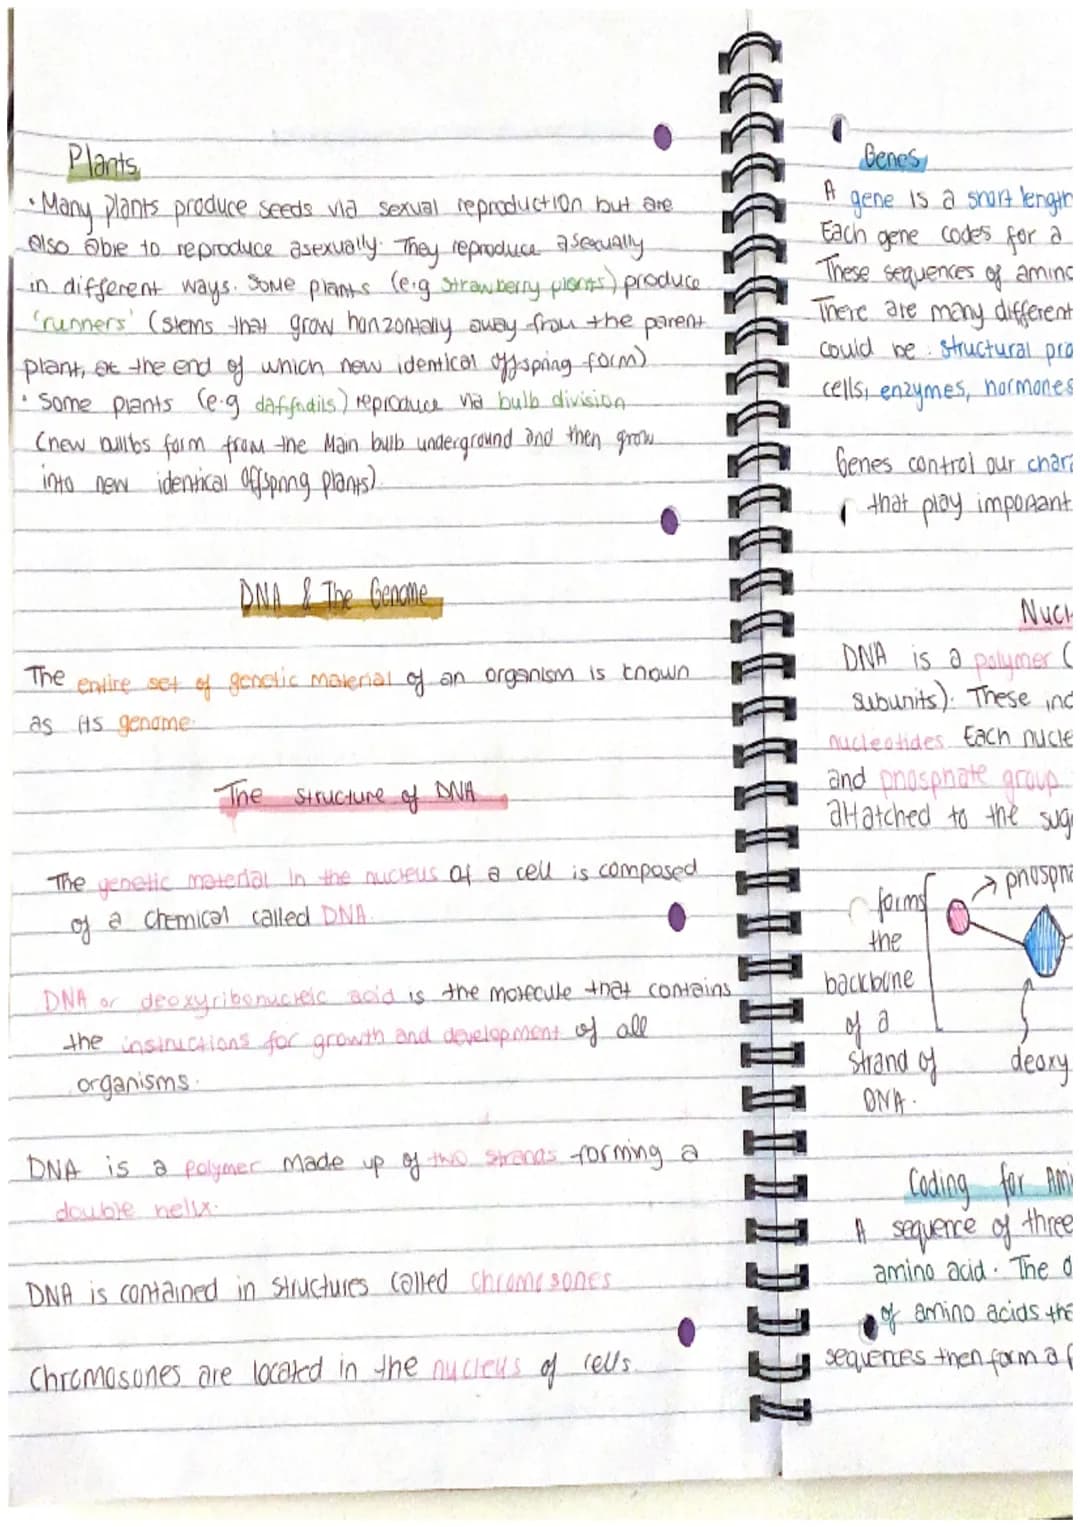 Plants
• Many plants produce seeds via sexual reproduction but are
also able to reproduce asexually. They reproduce asexually
in different ways. Some plants (e.g strawberry plants) produce
'runners' (stems that grow horizontally away from the parent
plant, at the end of which new identical offspring form)
• Some plants (e.g daffodils) reproduce via bulb division
(new bulbs form from the main bulb underground and then grow
into new identical offspring plants).
DNA & The Genome
The entire set of genetic material of an organism is known
as its genome.
The structure of DNA
The genetic material in the nucleus of a cell is composed
of a chemical called DNA.
DNA or deoxyribonucleic acid is the molecule that contains
the instructions for growth and development of all
organisms.
DNA is a polymer made up of two strands forming a
double helix.
DNA is contained in structures called chromosones
Chromosones are located in the nucleus of cells.
Genes
A gene is a short length
Each gene codes for a
These sequences of amino
There are many different
could be : structural pro
cells, enzymes, hormones
Genes control our chara
that play important
Nucl
DNA is a polymer (
subunits). These ind
nucleotides. Each nucle
and phosphate group.
attatched to the suga
phospha
forms
the
backbone
of a
strand of
DNA.
deoxy
Coding for Ami
A sequence of three
amino acid. The o
of amino acids tha
sequences then form a p